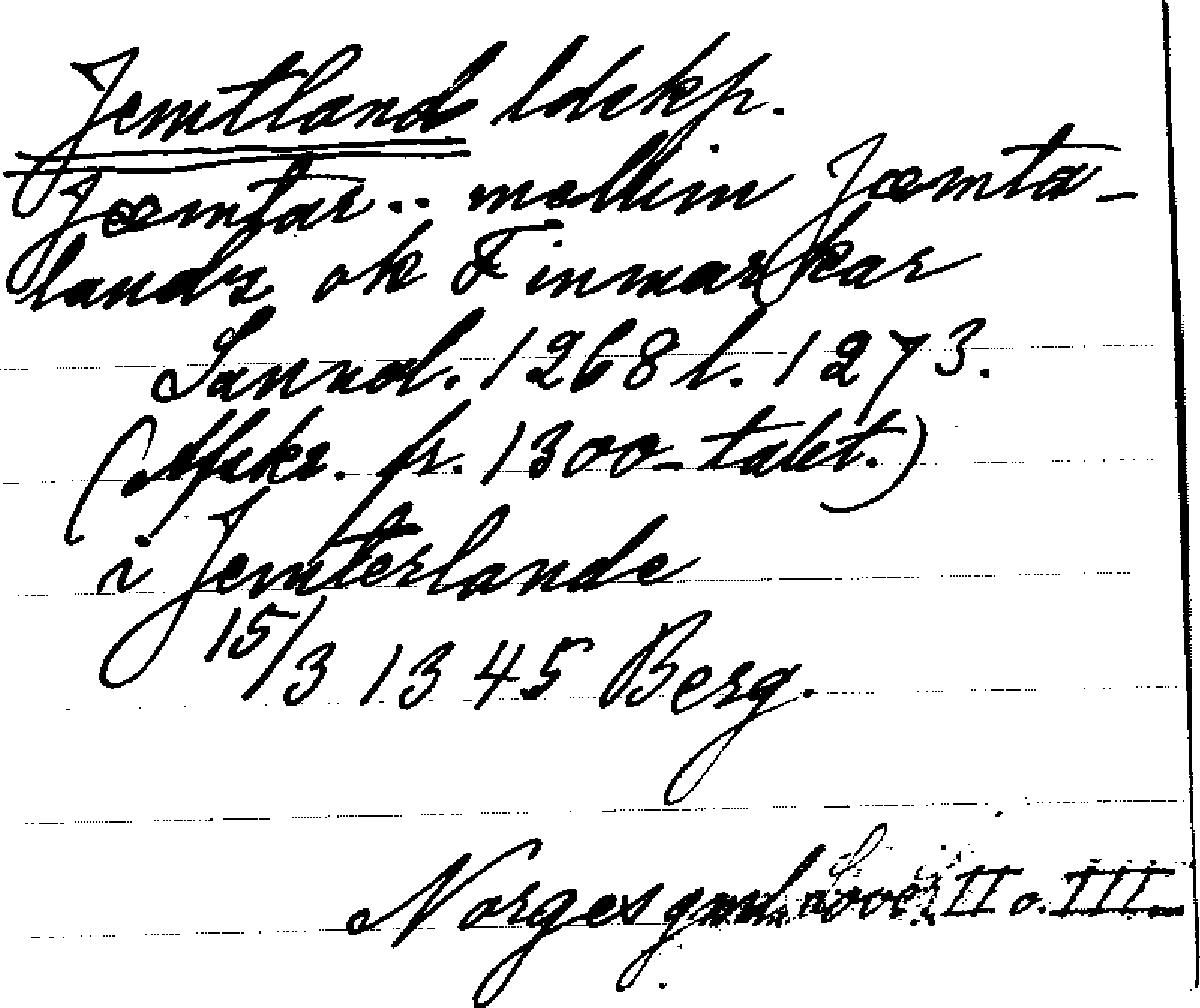 Jemtland ldskp.
Jæmtar.. mellim Jæmta-
lands ok Finmarkar
Sannol. 1268 l. 1273.
(Afskr. fr. 1300-talet.)
i Jemterlande
15/3 1345 Berg.
Norges gml. Love II o. III.